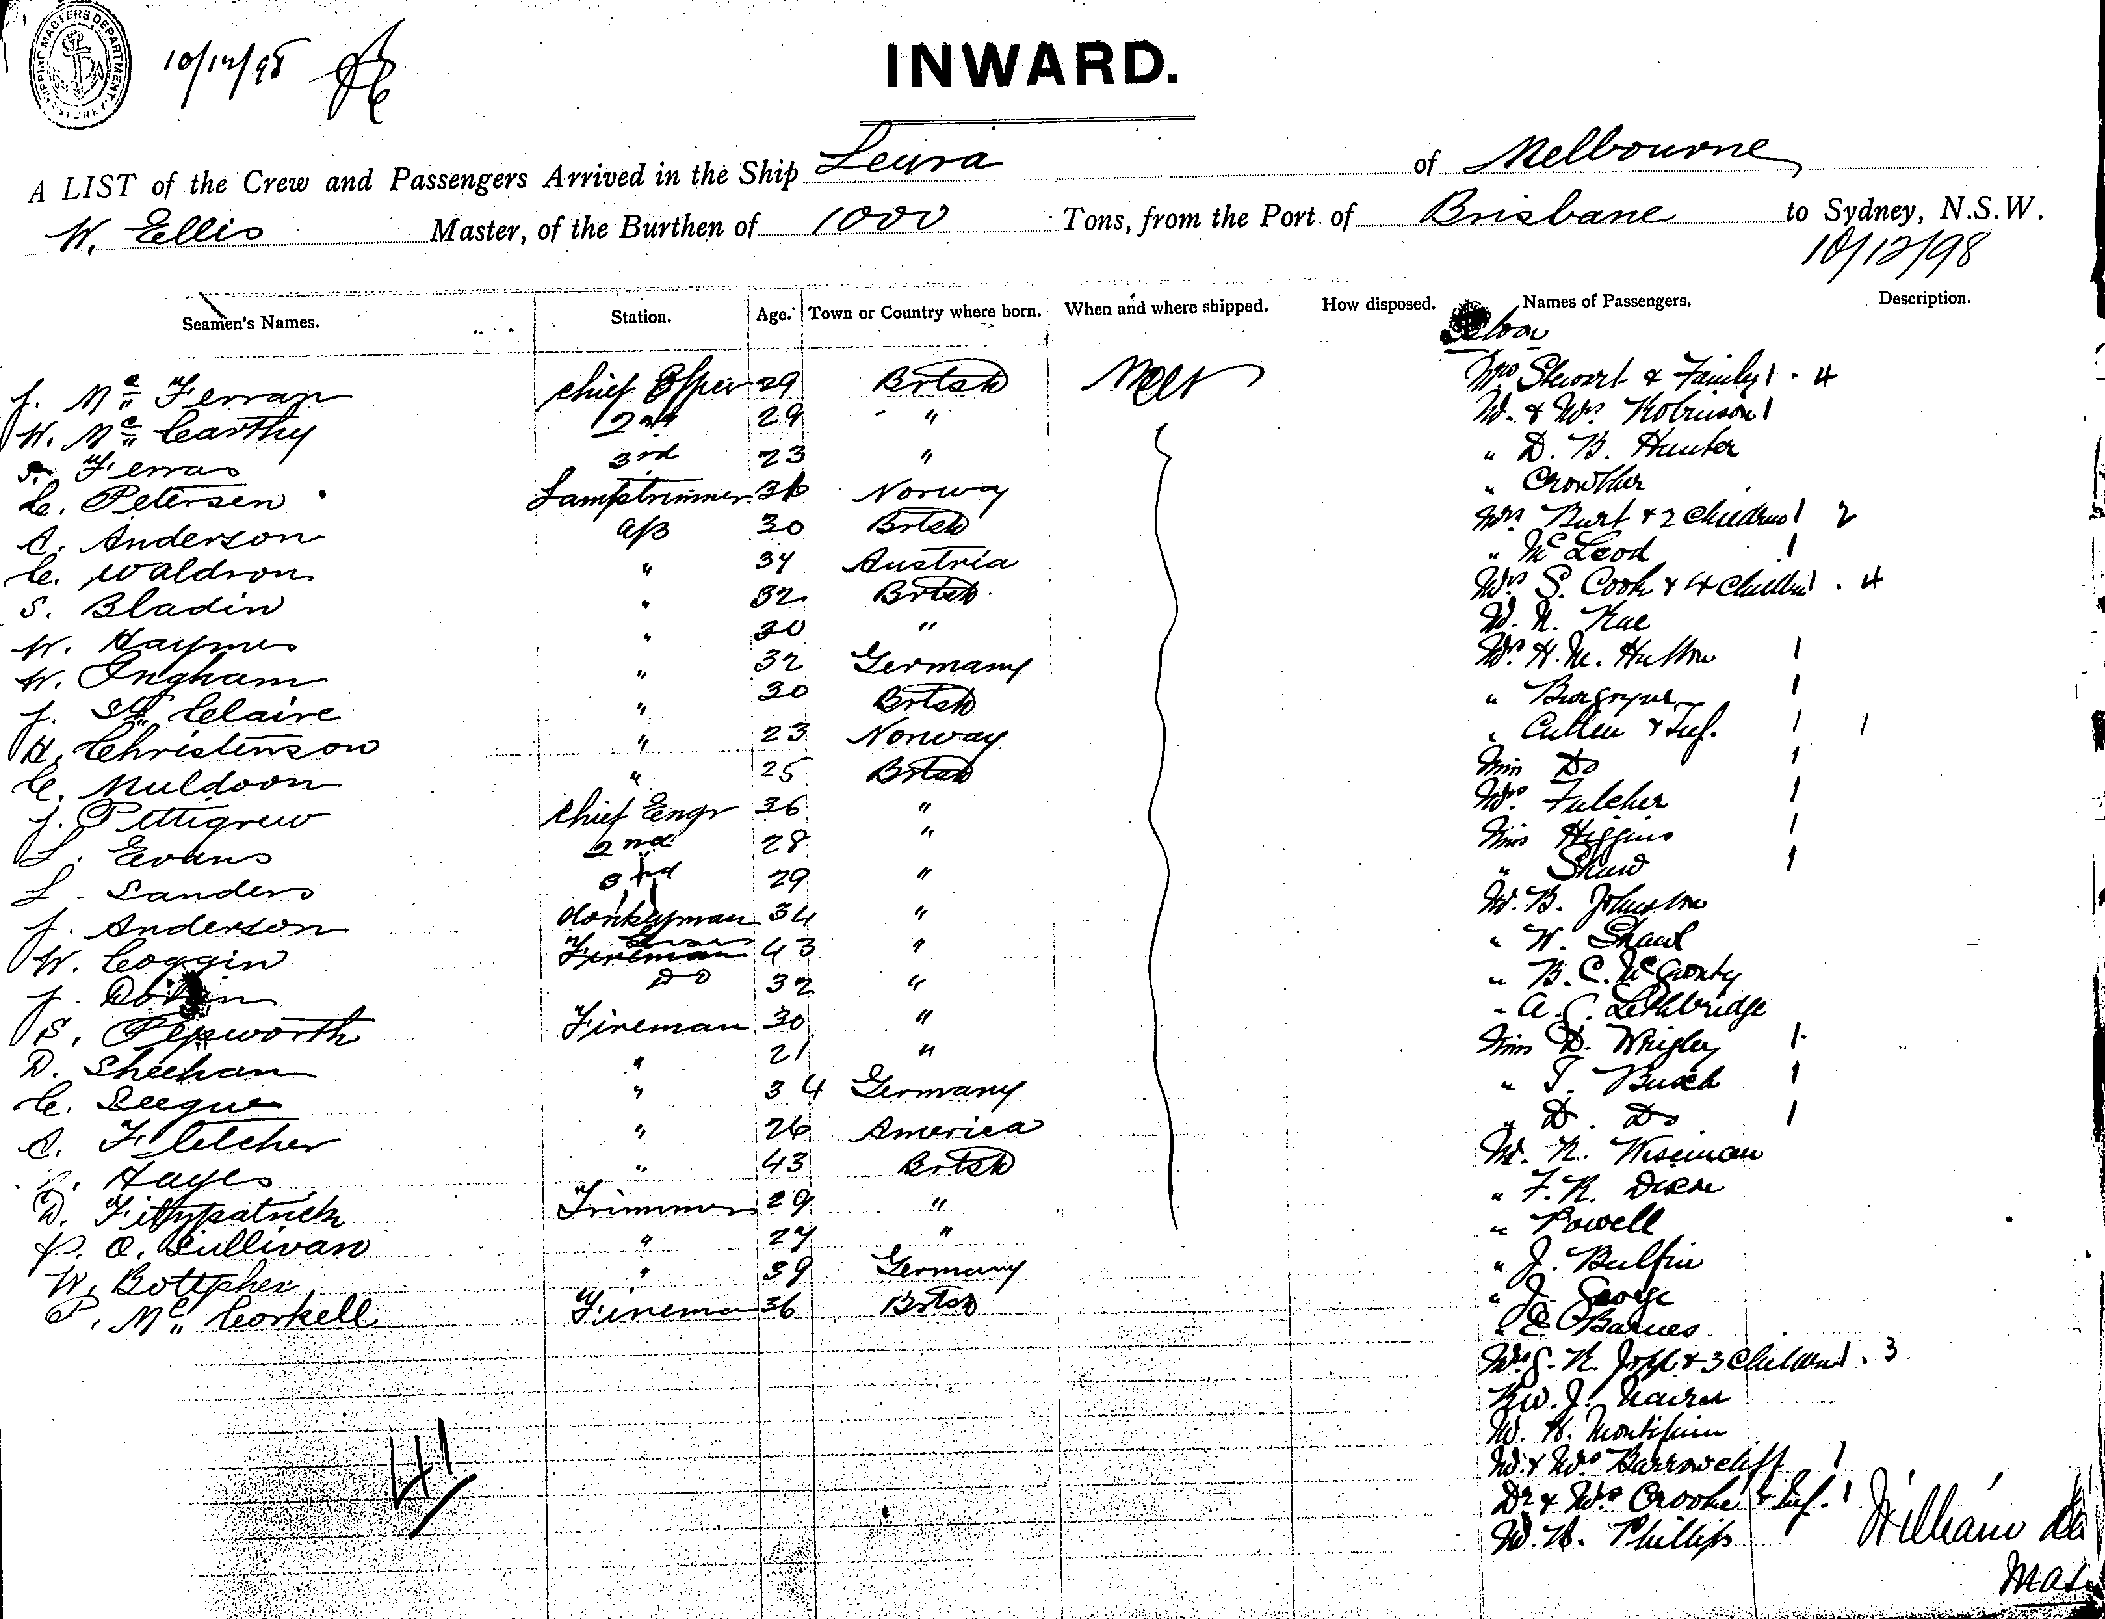 SHIPPING MASTERS DEPARTMENT
10/12/98
INWARD.
A LIST of the Crew and Passengers Arrived in the Ship Leura of Melbourne
W. Ellis Master, of the Burthen of 1000 Tons, from the Port of Brisbane to Sydney, N.S.W.
10/12/98
Seamen's Names. Station. Age. Town or Country where born. When and where shipped. How disposed. Names of Passengers. Description.
Saloon
J. Mc Ferran chief Offcer 29 Brtsh Melb Mrs Stewart & Family 1 . 4
W. Mc Carthy 2nd 29 " M. & Mrs Robinson 1
Ferras 3rd 23 " " D. B. Hunter
C. Petersen Lamptrimmer 36 Norway " Crowther
A. Anderson a/b 30 Brtsh Mrs Burt & 2 Children 1 2
C. Waldron " 34 Austria " Mc Leod 1
S. Bladin " 32 Brtsh Mrs S. Cook & 4 Children 1 . 4
W. Haymes " 30 " M. N. Rae
W. Ingham " 32 Germany Mrs H. M. Hutton 1
J. St Claire " 30 Brtsh " 1
H. Christenson " 23 Norway " Cullen & Inf. 1 1
C. Muldoon " 25 Brtsh Miss Do 1
J. Pettigrew chief Engr 36 " Mrs Fulcher 1
L. Evans 2nd 28 " Miss Higgins 1
L. Sanders 3rd 29 " " Shaw 1
J. Anderson donkeyman 34 " M. B. Johnston
W. Coggin Fireman 43 " " W. Shaul
J. Do 32 " " B. C. McGronty
S. Pepworth Fireman 30 " " A. C. Lethbridge
D. Sheehan " 21 " Miss D. Wrigley 1
C. Seegue " 34 Germany " T. Busch 1
A. Fletcher " 26 America " D. Do 1
Hayes " 43 Brtsh M. R. Wiseman
D. Fitzpatrick Trimmer 29 " " F. R. Dixon
P. O. Sullivan " 27 " " Powell
W. Bottpher " 39 Germany " J. Bulfin
P. Mc Corkell Fireman 36 Brtsh " J. George
" E Barnes
Mrs G. R. Jopp & 3 Children 1 . 3
Rev. J. Nairn
M. H. Montifiore
M. & Mrs Barrowcliff 1
Dr & Mrs Crooke & Inf. 1
M. H. Phillips
41
William
Mas